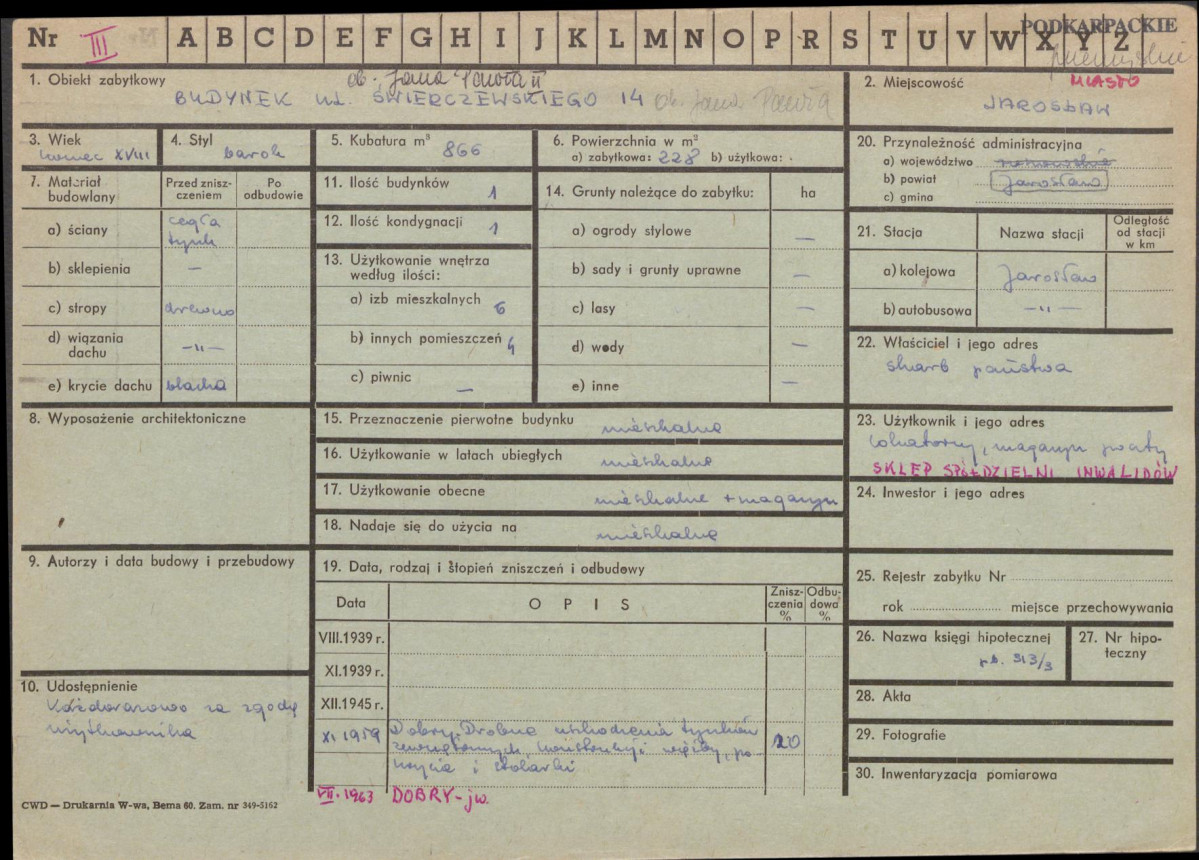 Nr III A B C D E F G H I J K L M N O P R S T U V W X Y Z
PODKARPACKIE
1. Obiekt zabytkowy
ob. Jana Pawła II
BUDYNEK ul. ŚWIERCZEWSKIEGO 14 ob. Jana Pawła
2. Miejscowość MIASTO
JAROSŁAW
3. Wiek
koniec XVIII
4. Styl
barok
5. Kubatura m³
866
6. Powierzchnia w m²
a) zabytkowa: 228 b) użytkowa: .
7. Materiał budowlany
Przed zniszczeniem
Po odbudowie
a) ściany cegła
tynk
b) sklepienia —
c) stropy drewno
d) wiązania dachu —„—
e) krycie dachu blacha
8. Wyposażenie architektoniczne
9. Autorzy i data budowy i przebudowy
10. Udostępnienie
Każdorazowo za zgodą
użytkownika
CWD — Drukarnia W-wa, Bema 60. Zam. nr 349-5162
11. Ilość budynków 1
12. Ilość kondygnacji 1
13. Użytkowanie wnętrza
według ilości:
a) izb mieszkalnych 6
b) innych pomieszczeń 4
c) piwnic —
14. Grunty należące do zabytku: ha
a) ogrody stylowe —
b) sady i grunty uprawne —
c) lasy —
d) wody —
e) inne —
15. Przeznaczenie pierwotne budynku mieszkalne
16. Użytkowanie w latach ubiegłych mieszkalne
17. Użytkowanie obecne mieszkalne + magazyn
18. Nadaje się do użycia na mieszkalne
19. Data, rodzaj i stopień zniszczeń i odbudowy
Data OPIS Zniszczenia % Odbudowa %
VIII.1939 r.
XI.1939 r.
XII.1945 r.
XI 1959 Dobry. Drobne uszkodzenia tynków 20
zewnętrznych, konstrukcji więźby, po-
krycia i stolarki
VII.1963 DOBRY - jw.
20. Przynależność administracyjna
a) województwo rzeszowskie
b) powiat Jarosław
c) gmina
21. Stacja
Nazwa stacji
Odległość od stacji w km
a) kolejowa Jarosław
b) autobusowa —„—
22. Właściciel i jego adres
skarb państwa
23. Użytkownik i jego adres
lokatorzy, magazyn
SKLEP SPÓŁDZIELNI INWALIDÓW
24. Inwestor i jego adres
25. Rejestr zabytku Nr
rok miejsce przechowywania
26. Nazwa księgi hipotecznej
27. Nr hipoteczny
28. Akta
29. Fotografie
30. Inwentaryzacja pomiarowa